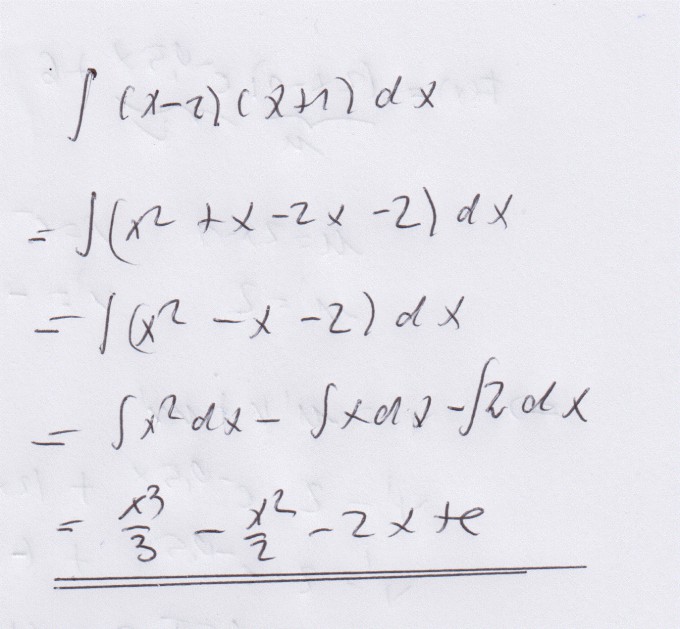 ∫ (x-2)(x+1) dx
= ∫(x² + x - 2x - 2) dx
= ∫(x² - x - 2) dx
= ∫x²dx - ∫xdx - ∫2dx
= x³/3 - x²/2 - 2x + c